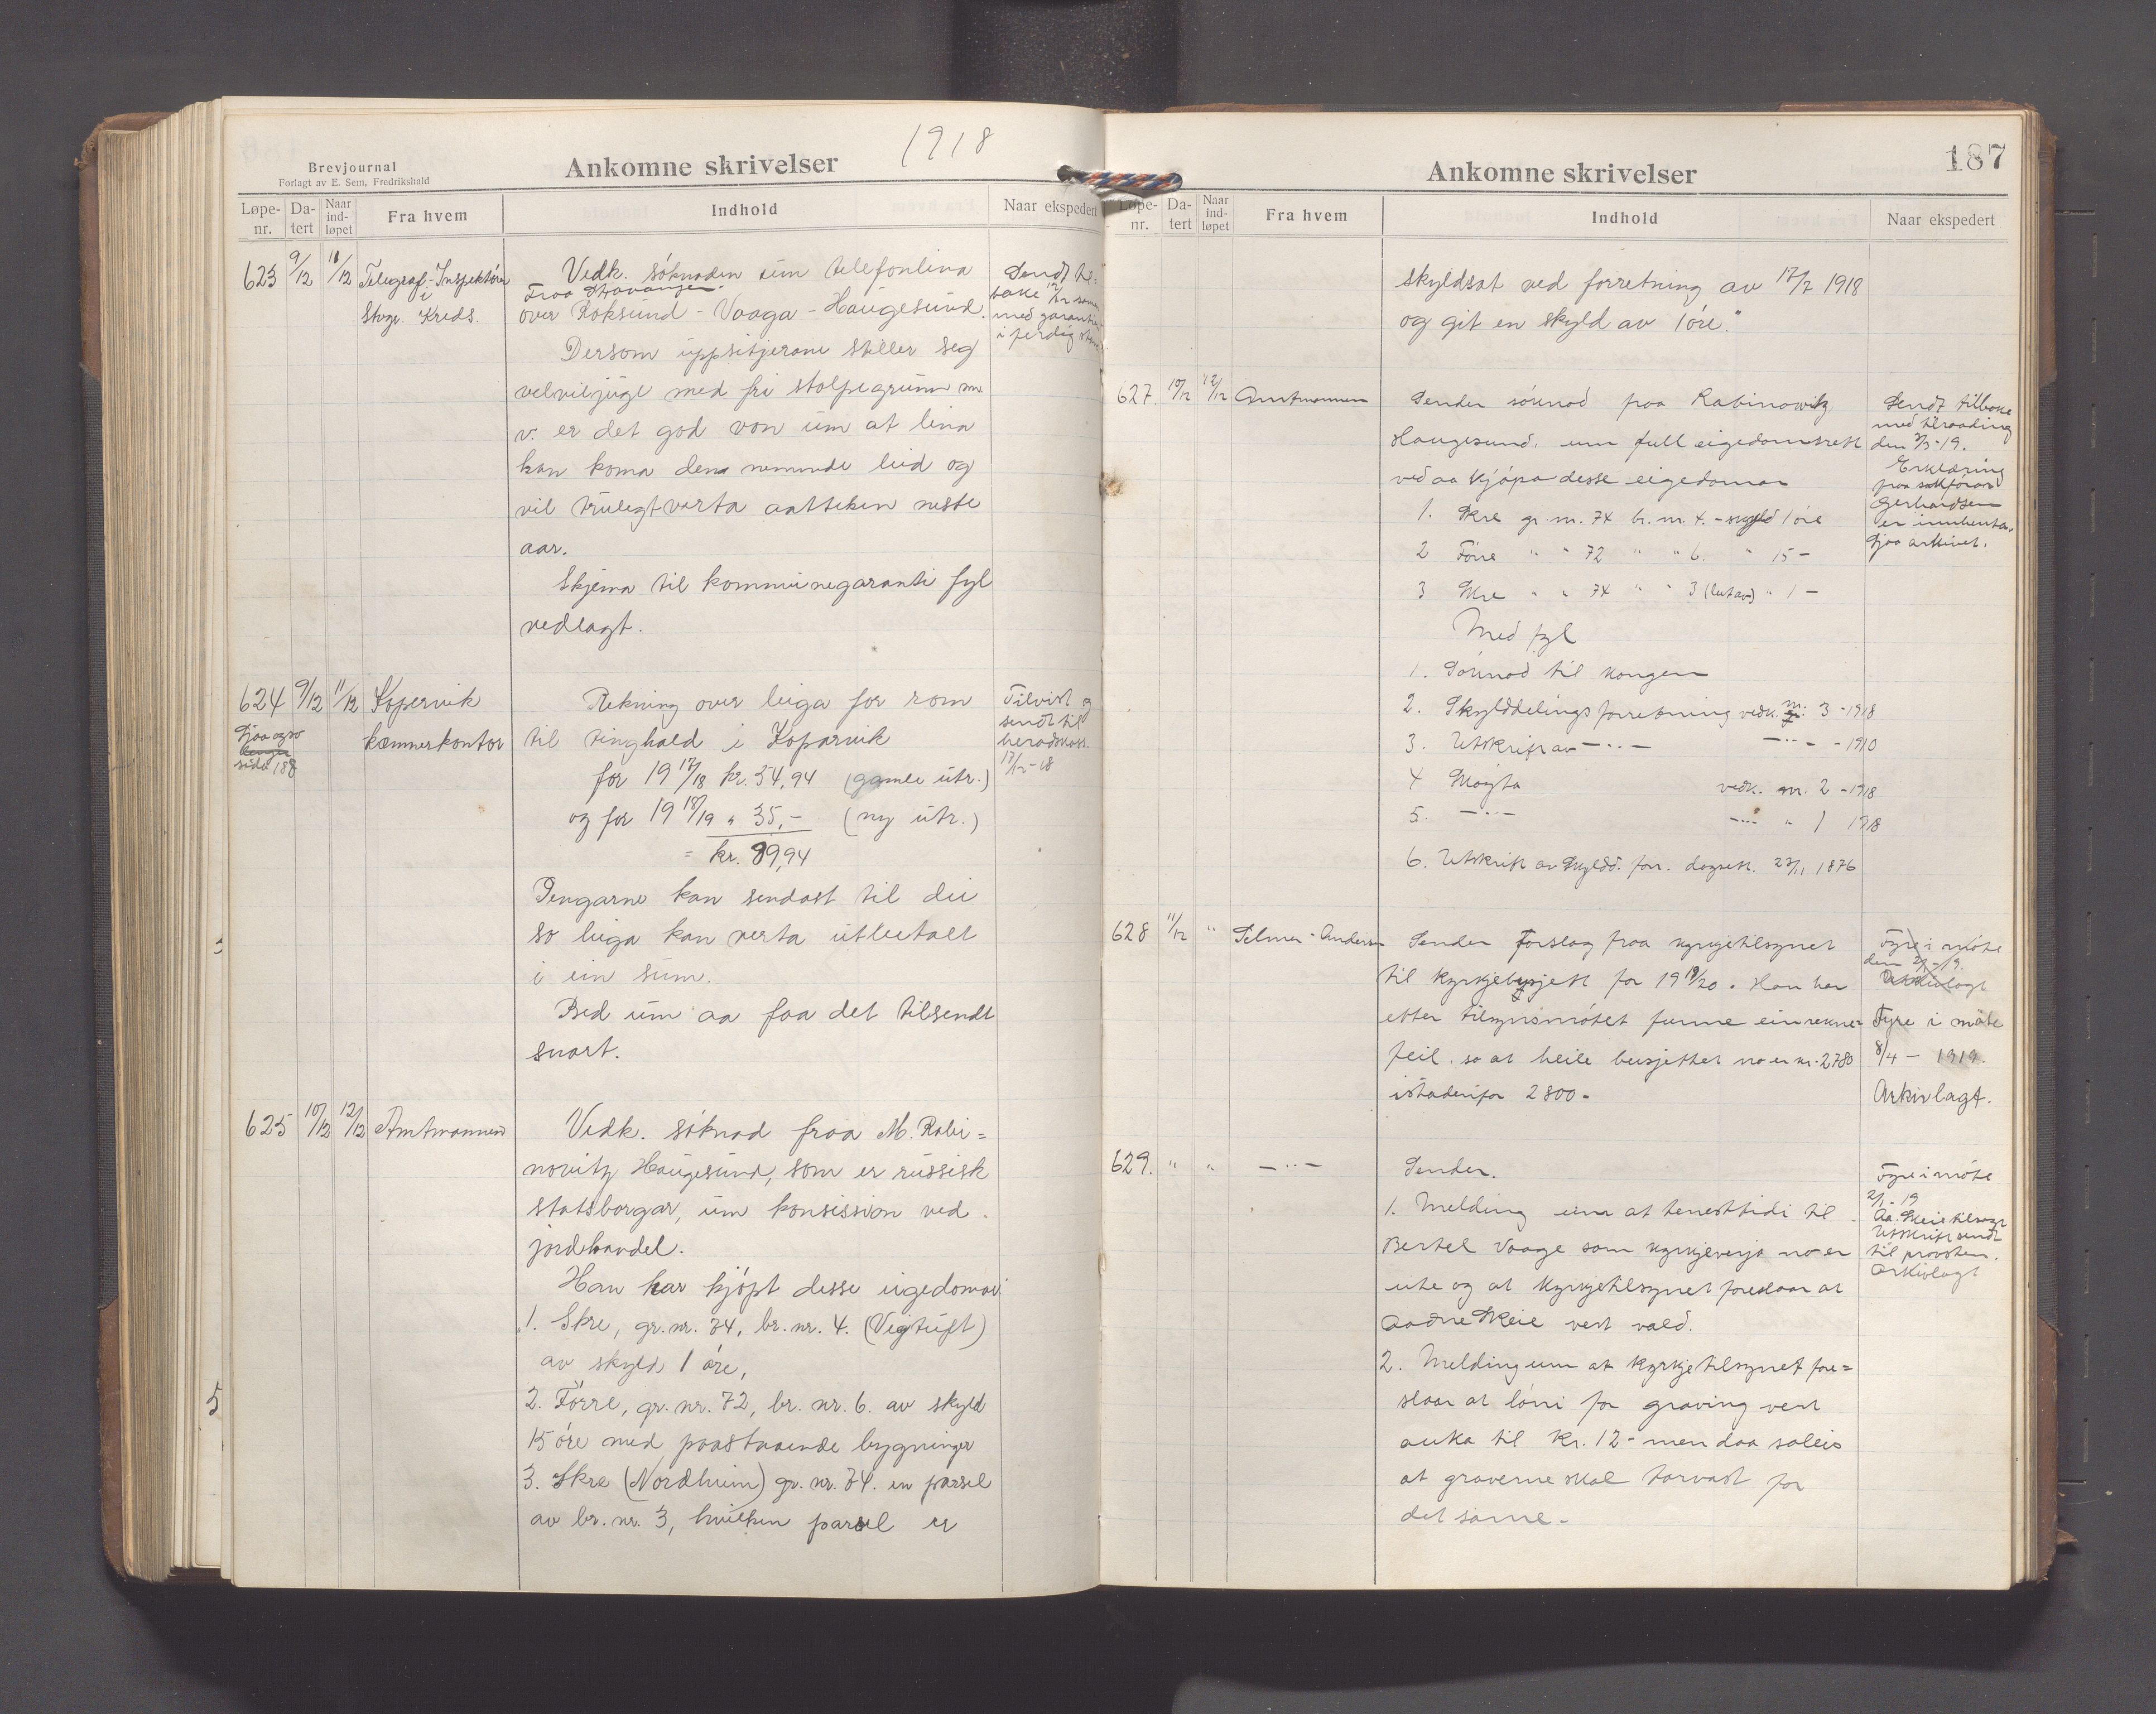 1918
Brevjournal
Forlagt av E. Sem, Fredrikshald
Ankomne skrivelser
Løpe-nr. Da-tert Naar ind-løpet Fra hvem Indhold Naar ekspedert
623 9/12 11/12 Telegraf-Inspektøren
i
Stvgr. Kreds.
Vedk. söknaden um telefonlina
Fraa Stavanger
over Røksund - Vaaga - Haugesund.
Dersom uppsitjerane stiller seg
velviljuge med fri stolpegrunn m.
v. er det god von um at lina
kan koma dena nemnde leid og
vil truleg verta aatteken neste
aar.
Skjema til kommunegaranti fyl
vedlagt.
Sendt til=
bake
med garantien
i ferdig stand
624 9/12 11/12 Kopervik
kæmnerkontor
Sjaa ogso
side 188
Rekning over leiga for rom
til tinghald i Koparvik
for 19 17/18 kr. 54,94 (gamle utr.)
og for 19 18/19 " 35,- (ny utr.)
= kr. 89,94
Pengarne kan sendast til dei
so leiga kan verta utbetalt
i ein sum.
Bed um aa faa det tilsendt
snart.
Tilvist og
sendt til
heradskass.
17/12-18
625 10/12 12/12 Amtmannen
Vedk. söknad fraa M. Rabi=
novitz Haugesund, som er russisk
statsborgar, um konsission ved
jordhandel.
Han har kjöpt desse eigedomar
"1. Skre, gr. nr. 74, br. nr. 4. (Vigtuft)
av skyld 1 öre,
2. Förre, gr. nr. 72, br. nr. 6. av skyld
15 öre med paastaaende bygninger
3. Skre (Nordheim) gr. nr. 74. en parsel
av br. nr. 3, hvilken parsel er
Ankomne skrivelser
187
Løpe-nr. Da-tert Naar ind-løpet Fra hvem Indhold Naar ekspedert
skyldsat ved forretning av 17/7 1918
og git en skyld av 1 öre."
627. 10/12 12/12 Amtmannen
Sender söknad fraa Rabinowitz
Haugesund, um full eigedomsrett
ved aa kjöpa desse eigedomar
1. Skre gr. nr. 74 br. nr. 4. - skyld 1 öre
2 Förre " " 72 " " 6. " 15 -
3 Skre " " 74 " " 3 (lut av) " 1 -
Med fyl
1. Söknad til kongen
2. Skylddelingsforretning vedk. nr. 3 - 1918
3. Utskrift av -"- -"- - 1910
4 Skøyta vedk. nr. 2 - 1918
5. -"- -"- " 1 1918
6. Utskrift av skyldd. forr. dagsett. 23/11 1876
Sendt tilbake
med tilraading
den 2/1-19.
Erklæring
fraa sakförar
Gerhardsen
er innhenta.
Sjaa arkivet.
628 11/12 " Selmer-Andersen
Sender forslag fraa kyrkjetilsynet
til kyrkjebusjett for 19 19/20. Han her
etter tilsynsmötet funne ein rekne=
feil, so at heile busjettet no er kr. 2780
istadenfor 2800-
Fyre i möte
den 2/1-19.
Arkivlagt
Fyre i möte
8/4 - 1919.
Arkivlagt.
629. " " -"-
Sender.
1. Melding um at tenesttidi til
Bertel Vaage som kyrkjeverja no er
ute og at kyrkjetilsynet foreslaar at
Aadne Skeie vert vald.
2. Melding um at kyrkjetilsynet fore=
slaar at löni for graving vert
auka til kr. 12- men daa soleis
at graverne skal torvast for
det same.-
Fyre i möte
2/1-19
Aa. Skeie tilsagt
Utskrift sendt
til provsten.
Arkivlagt
5